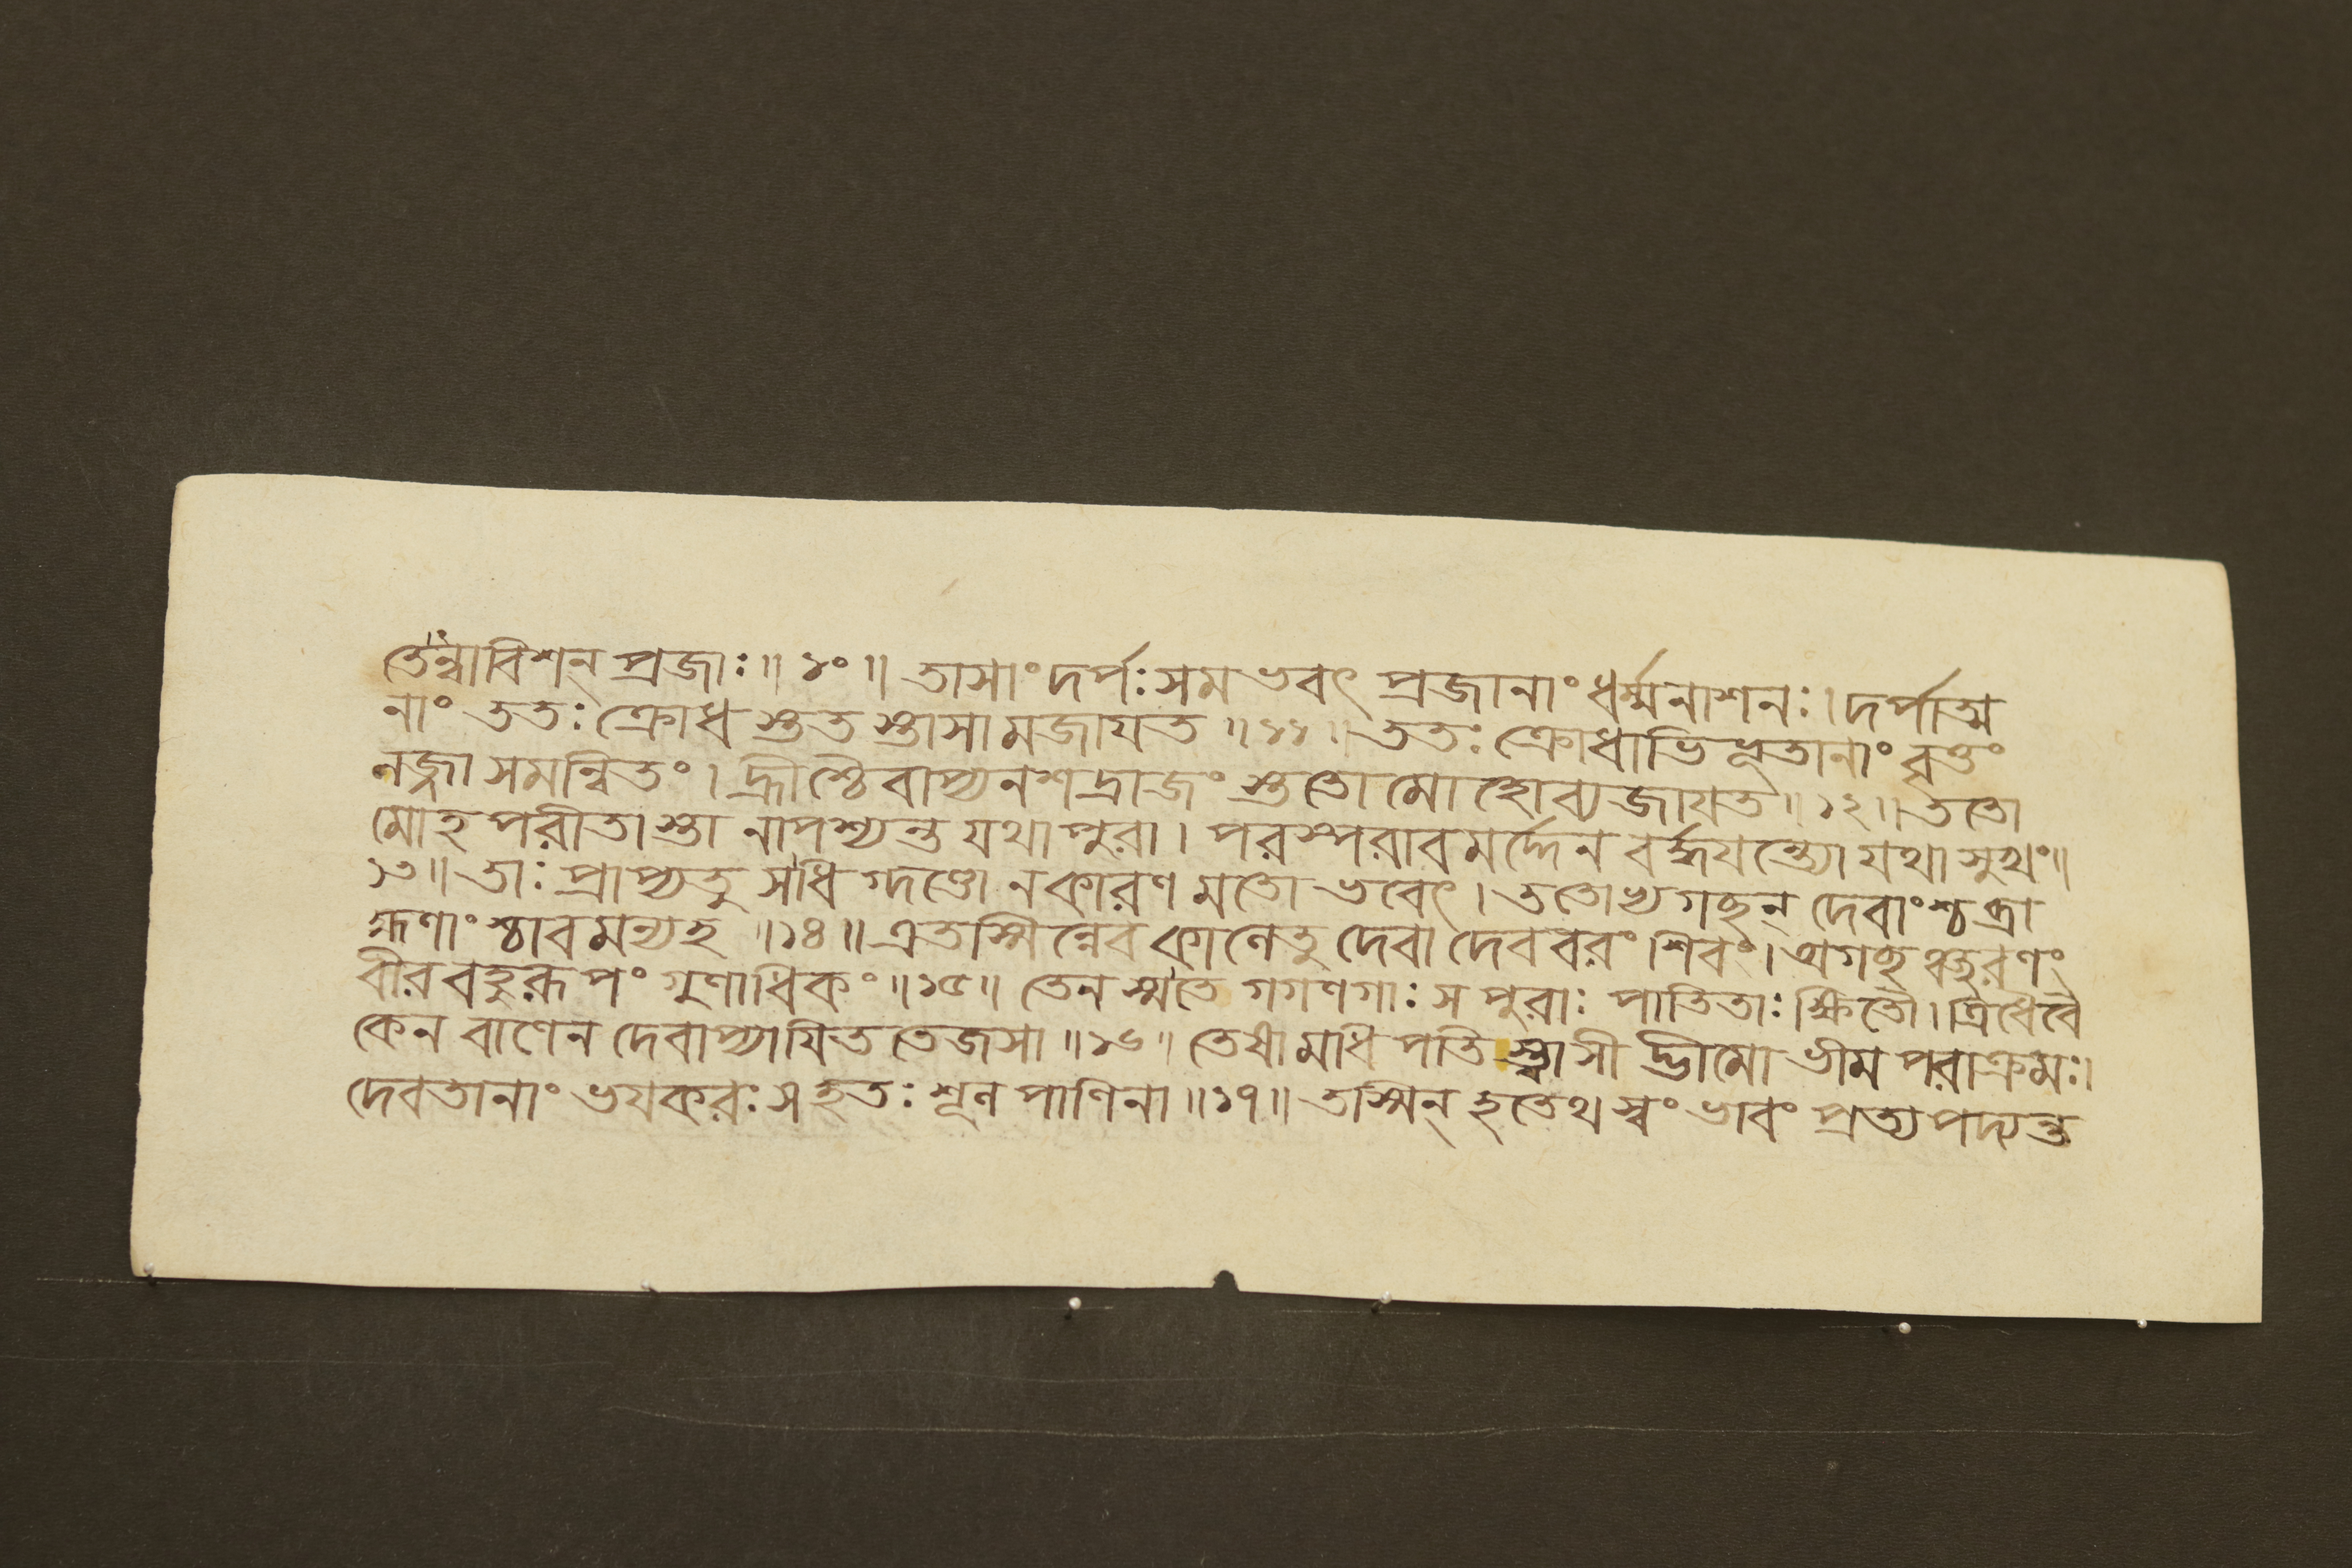 তেন্বাবিশন্ প্রজাঃ ॥ ১০ ॥ তাসাং দর্পঃ সমভবৎ প্রজানাং ধর্ম্মনাশনঃ । দর্পাত্ম
নাং ততঃ ক্রোধ স্তত স্তাসামজাযত ॥ ১১ ॥ ততঃ ক্রোধাভিপ্লূতানাং বৃত্তং
নজ্জা সমন্বিতং । হ্রীশ্চৈবাপ্যনশদ্রাজং স্ততো মোহোব্যজাযত ॥ ১২ ॥ ততো
মোহ পরীতা স্তা নাপশ্যন্ত যথাপুরা । পরস্পরাবমর্দ্দেন বর্দ্ধযন্ত্যো যথাসুখং ॥
১৩ ॥ তাঃ প্রাপ্যতু সধিগ্দণ্ডো নকারণ মতো ভবেৎ । ততোভ্যগচ্ছন্ দেবাংশ্চ ব্রা
হ্মণাং শ্চাবমন্যহ ॥ ১৪ ॥ এতস্মিন্নেব কানেতু দেবা দেববরং শিবং । অগচ্ছ ঞ্চ্ছরণং
বীর বহুরূপং গুণাধিকং ॥ ১৫ ॥ তেন স্মতে গগণগাঃ স পুরাঃ পাতিতাঃ ক্ষিতৌ । ত্রিধৈবৈ
কেন বাণেন দেবাপ্যাযিত তেজসা ॥ ১৬ ॥ তেষামাধিপতি স্ত্বাসী দ্ভীমো ভীম পরাক্রমঃ ।
দেবতানাং ভযকরঃ স হতঃ শূনপাণিনা ॥ ১৭ ॥ তস্মিন্ হতেথ স্বং ভাবং প্রত্যপদ্যন্ত